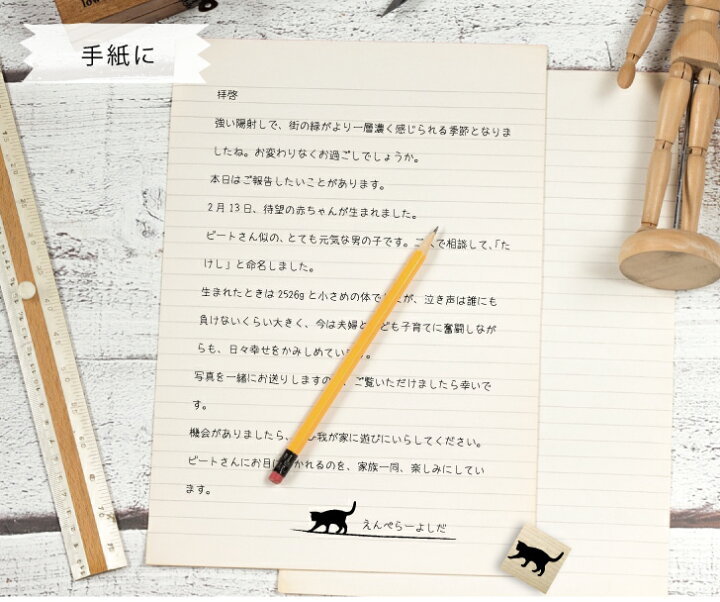 手紙に
拝啓
強い陽射しで、街の緑がより一層濃く感じられる季節となりま
したね。お変わりなくお過ごしでしょうか。
本日はご報告したいことがあります。
2月13日、待望の赤ちゃんが生まれました。
ビートさん似の、とても元気な男の子です。 で相談して、「た
けし」と命名しました。
生まれたときは2526gと小さめの体で が、泣き声は誰にも
負けないくらい大きく、今は夫婦と ども子育てに奮闘しなが
らも、日々幸せをかみしめてい 。
写真を一緒にお送りします 、ご覧いただけましたら幸いで
す。
機会がありましたら、 我が家に遊びにいらしてください。
ビートさんにお目に かれるのを、家族一同、楽しみにしてい
ます。
えんぺらーよしだ